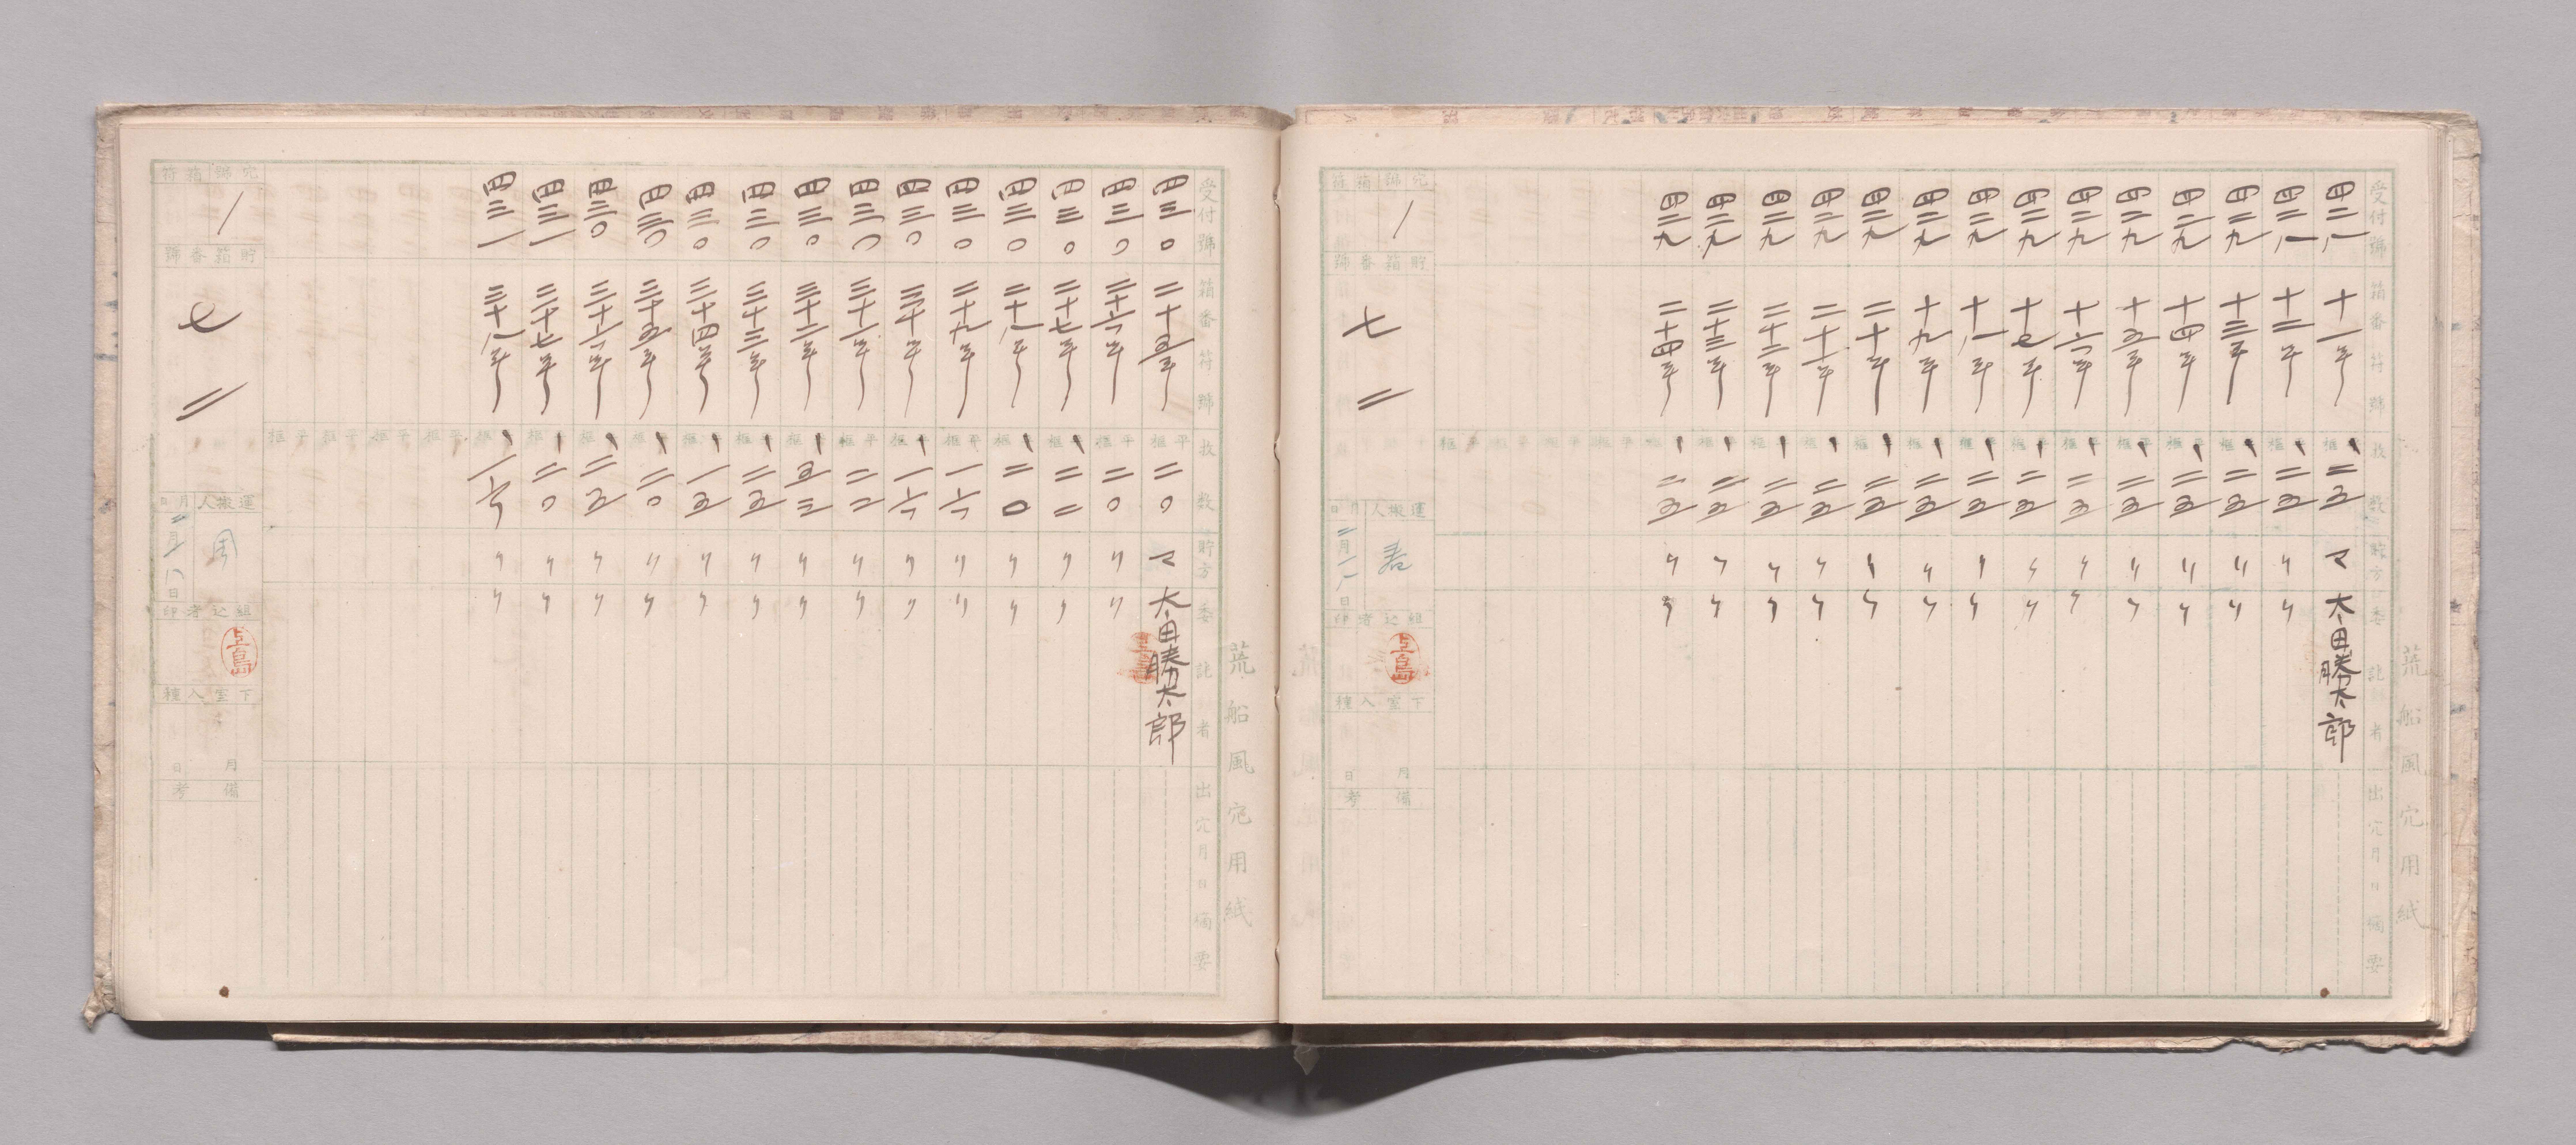 荒船風穴用紙
受付號 箱番符號 枚数 貯方 委託者 出穴月日 摘要
四二八 十一年 平框 二五 マ 太田勝太郎
四二八 十二年 平框 二五 〃 〃
四二九 十三年 平框 二五 〃 〃
四二九 十四年 平框 二五 〃 〃
四二九 十五年 平框 二五 〃 〃
四二九 十六年 平框 二五 〃 〃
四二九 十七年 平框 二五 〃 〃
四二九 十八年 平框 二五 〃 〃
四二九 十九年 平框 二五 〃 〃
四二九 二十年 平框 二五 〃 〃
四二九 二十一年 平框 二五 〃 〃
四二九 二十二年 平框 二五 〃 〃
四二九 二十三年 平框 二五 〃 〃
四二九 二十四年 平框 二五 〃 〃
平框
平框
平框
平框
穴號 箱符
一
貯箱番號
七二
運搬人 月日
二月一八日
組込者印
上島
下室入種
月 日
備考
荒船風穴用紙
受付號 箱番符號 枚数 貯方 委託者 出穴月日 摘要
四三〇 二十五年 平框 二〇 マ 太田勝太郎
上島
四三〇 二十六年 平框 二〇 〃 〃
四三〇 二十七年 平框 二二 〃 〃
四三〇 二十八年 平框 二〇 〃 〃
四三〇 二十九年 平框 一六 〃 〃
四三〇 三十年 平框 一六 〃 〃
四三〇 三十一年 平框 二二 〃 〃
四三〇 三十二年 平框 五三 〃 〃
四三〇 三十三年 平框 二五 〃 〃
四三〇 三十四年 平框 一五 〃 〃
四三〇 三十五年 平框 二〇 〃 〃
四三〇 三十六年 平框 二五 〃 〃
四三一 三十七年 平框 二〇 〃 〃
四三一 三十八年 平框 一六 〃 〃
平框
平框
平框
平框
穴號 箱符
一
貯箱番號
七二
運搬人 月日
二月一八日
組込者印
上島
下室入種
月 日
備考